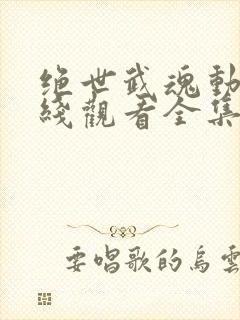 绝世武魂動
綫觀看全集
要唱歌的烏雲